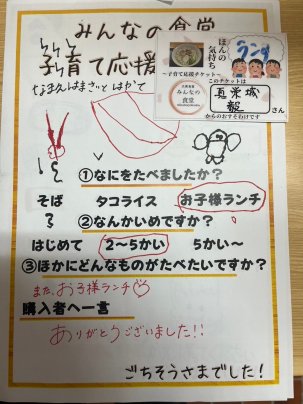 みんなの食堂
子育て応援
ほんの気持ち
ランチ
～子育て応援チケット～
みんなの食堂
このチケットは
真栄城
さん
からのおすそわけです
①なにをたべましたか？
そば タコライス お子様ランチ
②なんかいめですか？
はじめて 2～5かい 5かい～
③ほかにどんなものがたべたいですか？
また、お子様ランチ♡
購入者へ一言
ありがとうございました!!
ごちそうさまでした！